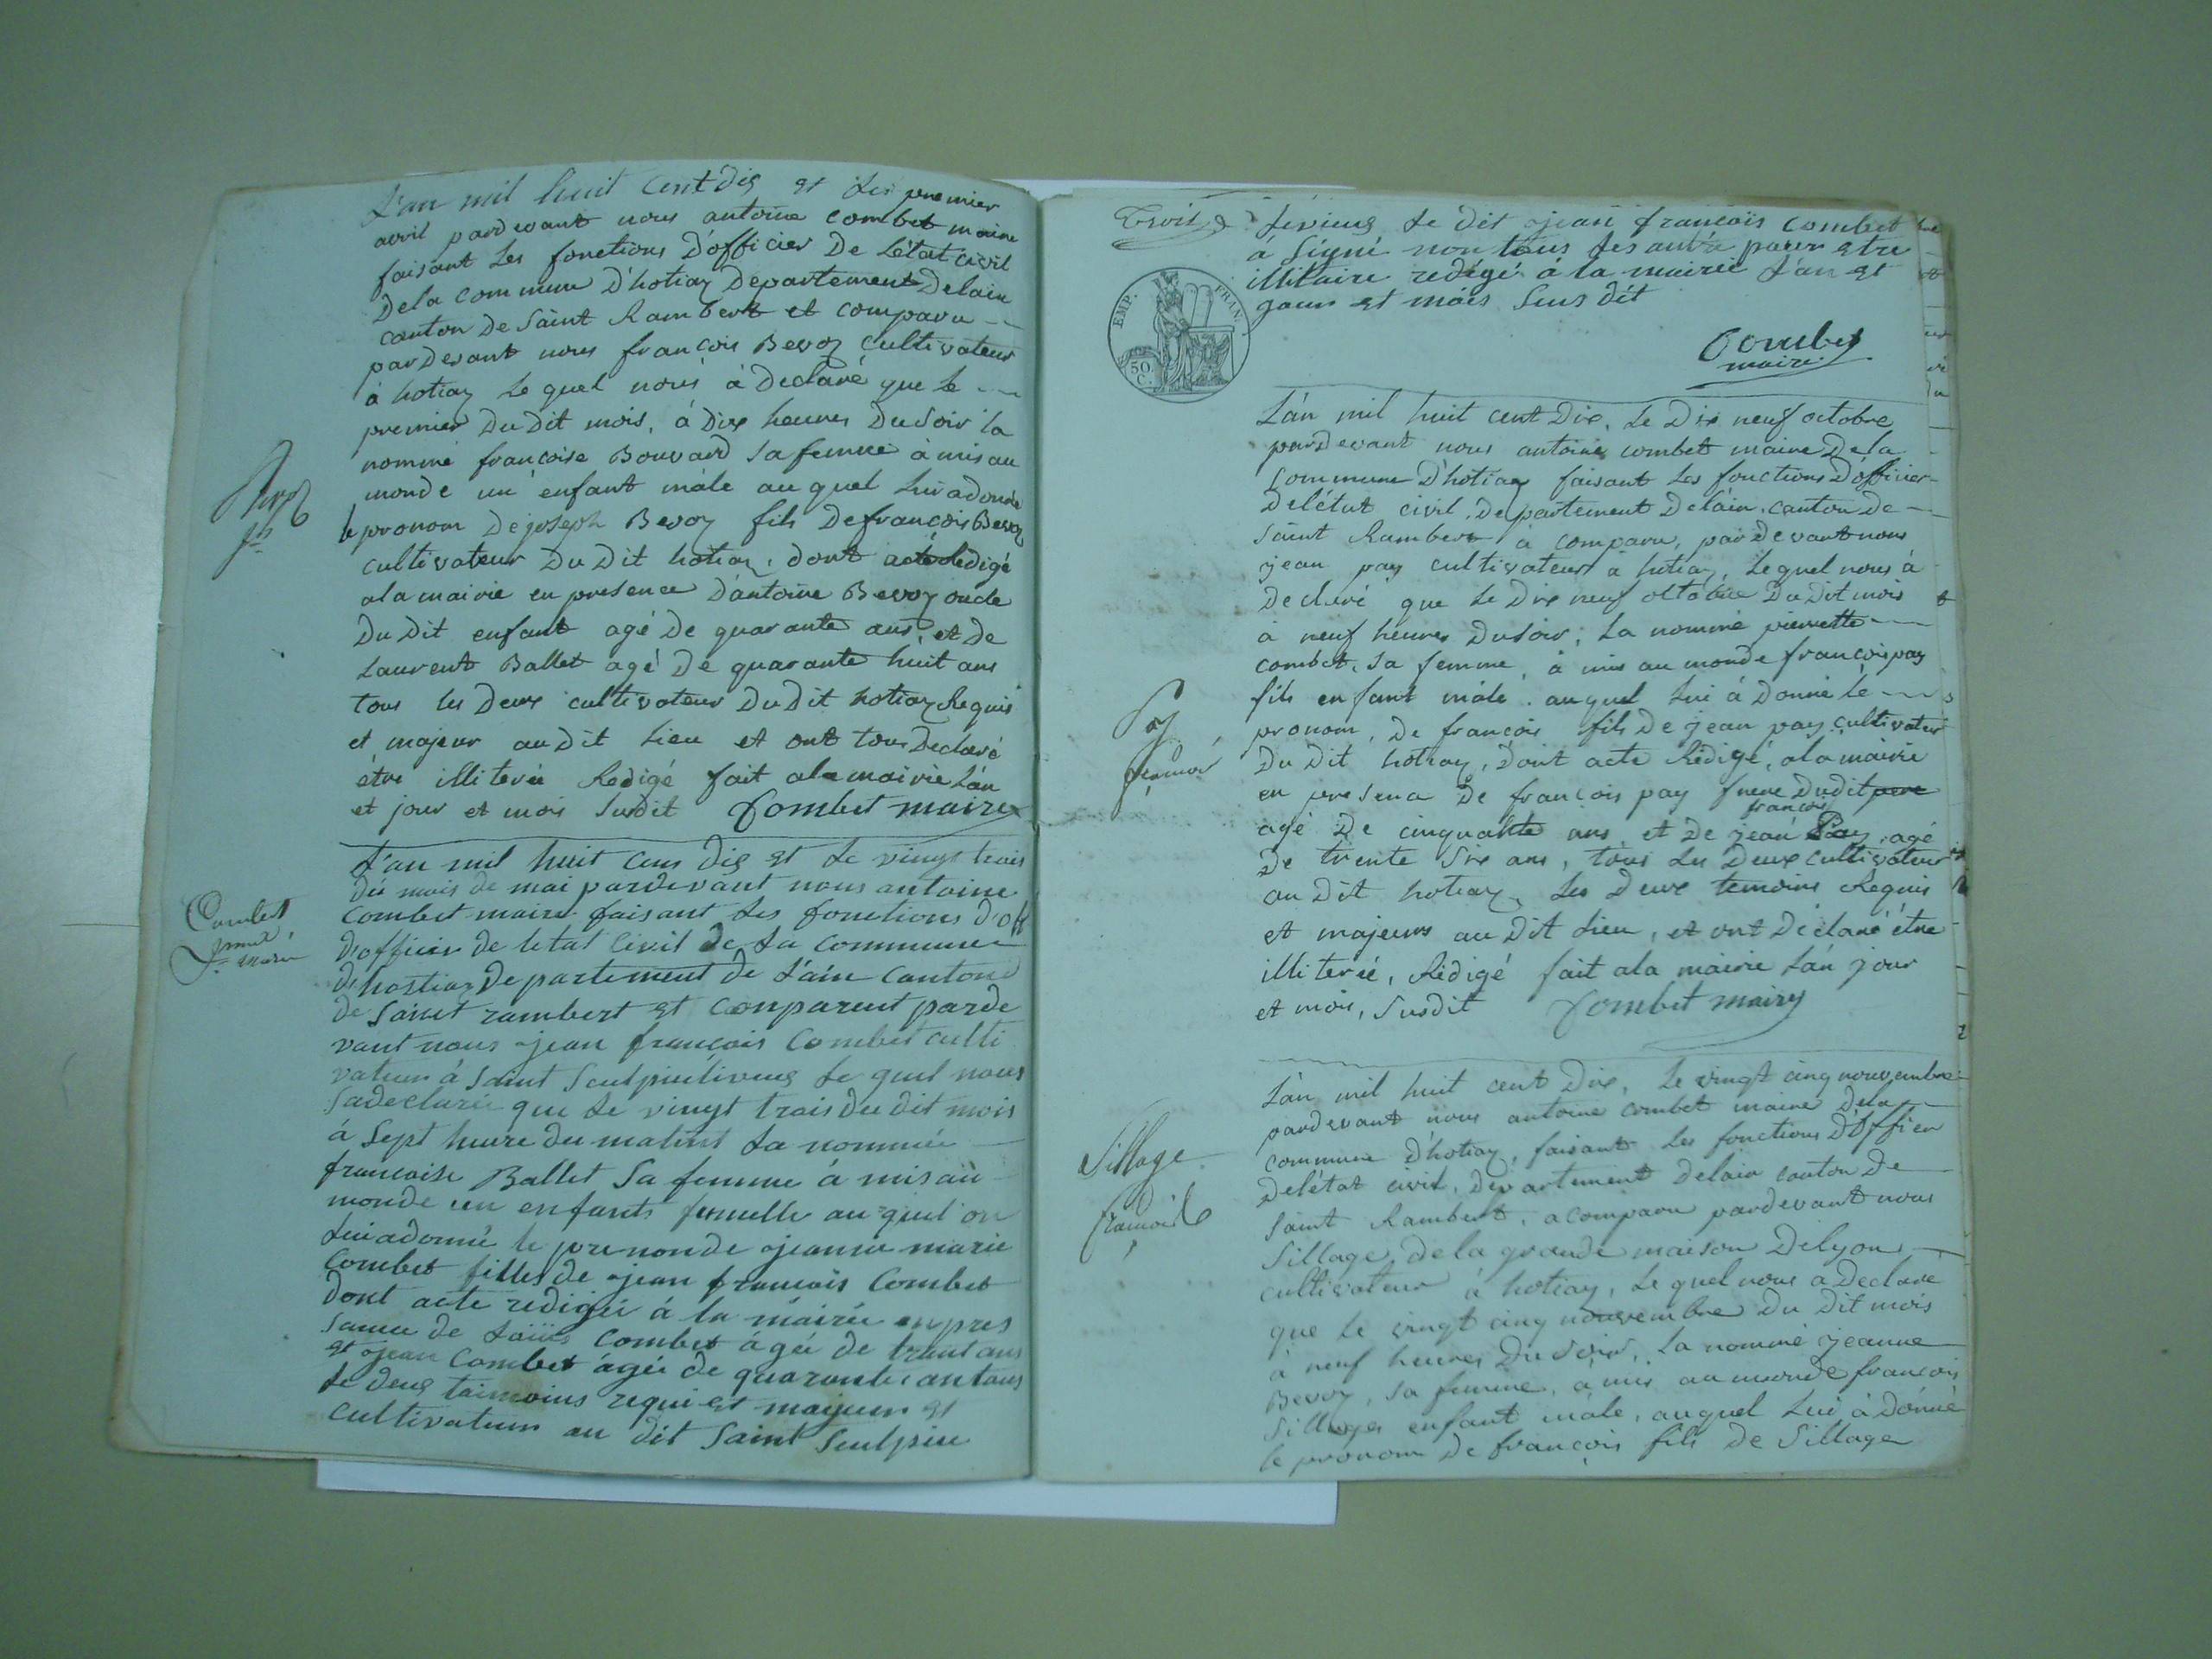 L'an mil huit Cent dis et Le premier
avril pardevant nous antoine combet maire
faisant Les fonctions D'officier De L'état civil
Dela commune D'hotiaz Departement Delain
canton De Saint Rambert et comparu
pardevant nous francois Bevoz Cultivateur
à hotiaz Le quel nous à Declaré que Le
premier Du Dit mois, à Dix heures Du Soir la
nommé francoise Bouvard Sa femme à mis au
monde un enfant mâle au quel Lui a donné
le pronom De joseph Bevoz fils De francois Bevoz
cultivateur Du Dit hotiaz, dont acte Redigé
a la mairie en presence D'antoine Bevoz oncle
Du Dit enfant agé De quarante ans, et De
Laurent Ballet agé De quarante huit ans
tous les Deux cultivateur Du Dit hotiaz Requis
et majeur au Dit Lieu et ont tous Declaré
étre illiterée Redigé fait a la mairie L'án
et jour et mois Susdit Combet maire
jh
L'an mil huit Cens dis et Le vingt trois
du mois de mai pardevant nous antoine
Combet maire faisant Les fonctions d'off
d'officier de letat Civil de La Commune
d'hostiaz departement de L'ain Canton
de Saint rambert et Conparut parde
vant nous jean francois Combet culti
vateur á Saint Sculpice Le quel nous
Sadeclaré que Le vingt trois du dit mois
á Sept heure du matint La nommée
francoise Ballet Sa femme á mis au
monde un enfants femelle au quel on
Lui adonné le prenon de jeanne marie
Combet filles de jean francois Combet
Dont acte redigée á la mairie en pres
sance de Loüis Combet ágée de trant ans
et jean Combet ágée de quarante an tous
Le deux taimoins requi et majeur et
Cultivateur au dit Saint Sculpice
Combet
jeanne
marie
Trois
Le dit jean francois Combet
á Signé non tous Les autre pour etre
illitaire redigé á la mairie L'an et
jour et mois Sus dit
Combet
maire
EMP. FRAN.
50
C.
L'án mil huit cent Dix, Le Dix neuf octobre
pardevant nous antoine combet maire Dela
Commune D'hotiaz faisant Les fonctions D'officier
Delétat civil, Departement Delain, canton De
Saint Rambert à comparu, pardevant nous
jean pay cultivateur a hotiaz, Lequel nous à
Declaré que Le Dix neuf octobre Du Dit mois
à neuf heures Du soir, La nommé pierrette
combet, Sa femme, à mis au monde francois pay
fils enfant mâle. auquel Lui à Donné Le
pronom, De francois fils De jean pay cultivateur
Du Dit hotiaz, Dont acte Rédigé, a la mairie
en presence De françois pay frere Dudit pere
françois
agé De cinquante ans et De jean Pay, agé
De trente Six ans, tous Les Deux cultivateur
au Dit hotiaz, Les Deux temoins Requis
et majeurs au Dit Lieu, et ont Déclaré étre
illiterée, Rédigé fait a la mairie L'án jour
et mois, Susdit Combet maire
Pay
françois
L'án mil huit cent Dix, Le vingt cinq nouvembre
pardevant nous antoine combet maire Dela
commune D'hotiaz, faisant Les fonctions D'offier
Delétat civil, Departement Delain canton De
Saint Rambert, a comparu pardevant nous
Sillage, De la grande maison De lyon
cultivateur à hotiaz, Le quel nous a Declaré
que le vingt cinq nouvembre Du Dit mois
à neuf heures Du Soir, La nommé jeanne
Bevoz, Sa femme, à mis au monde francois
Sillages enfant mâle, auquel Lui à Donné
le pronom De françois fils De Sillage
Sillage
francois